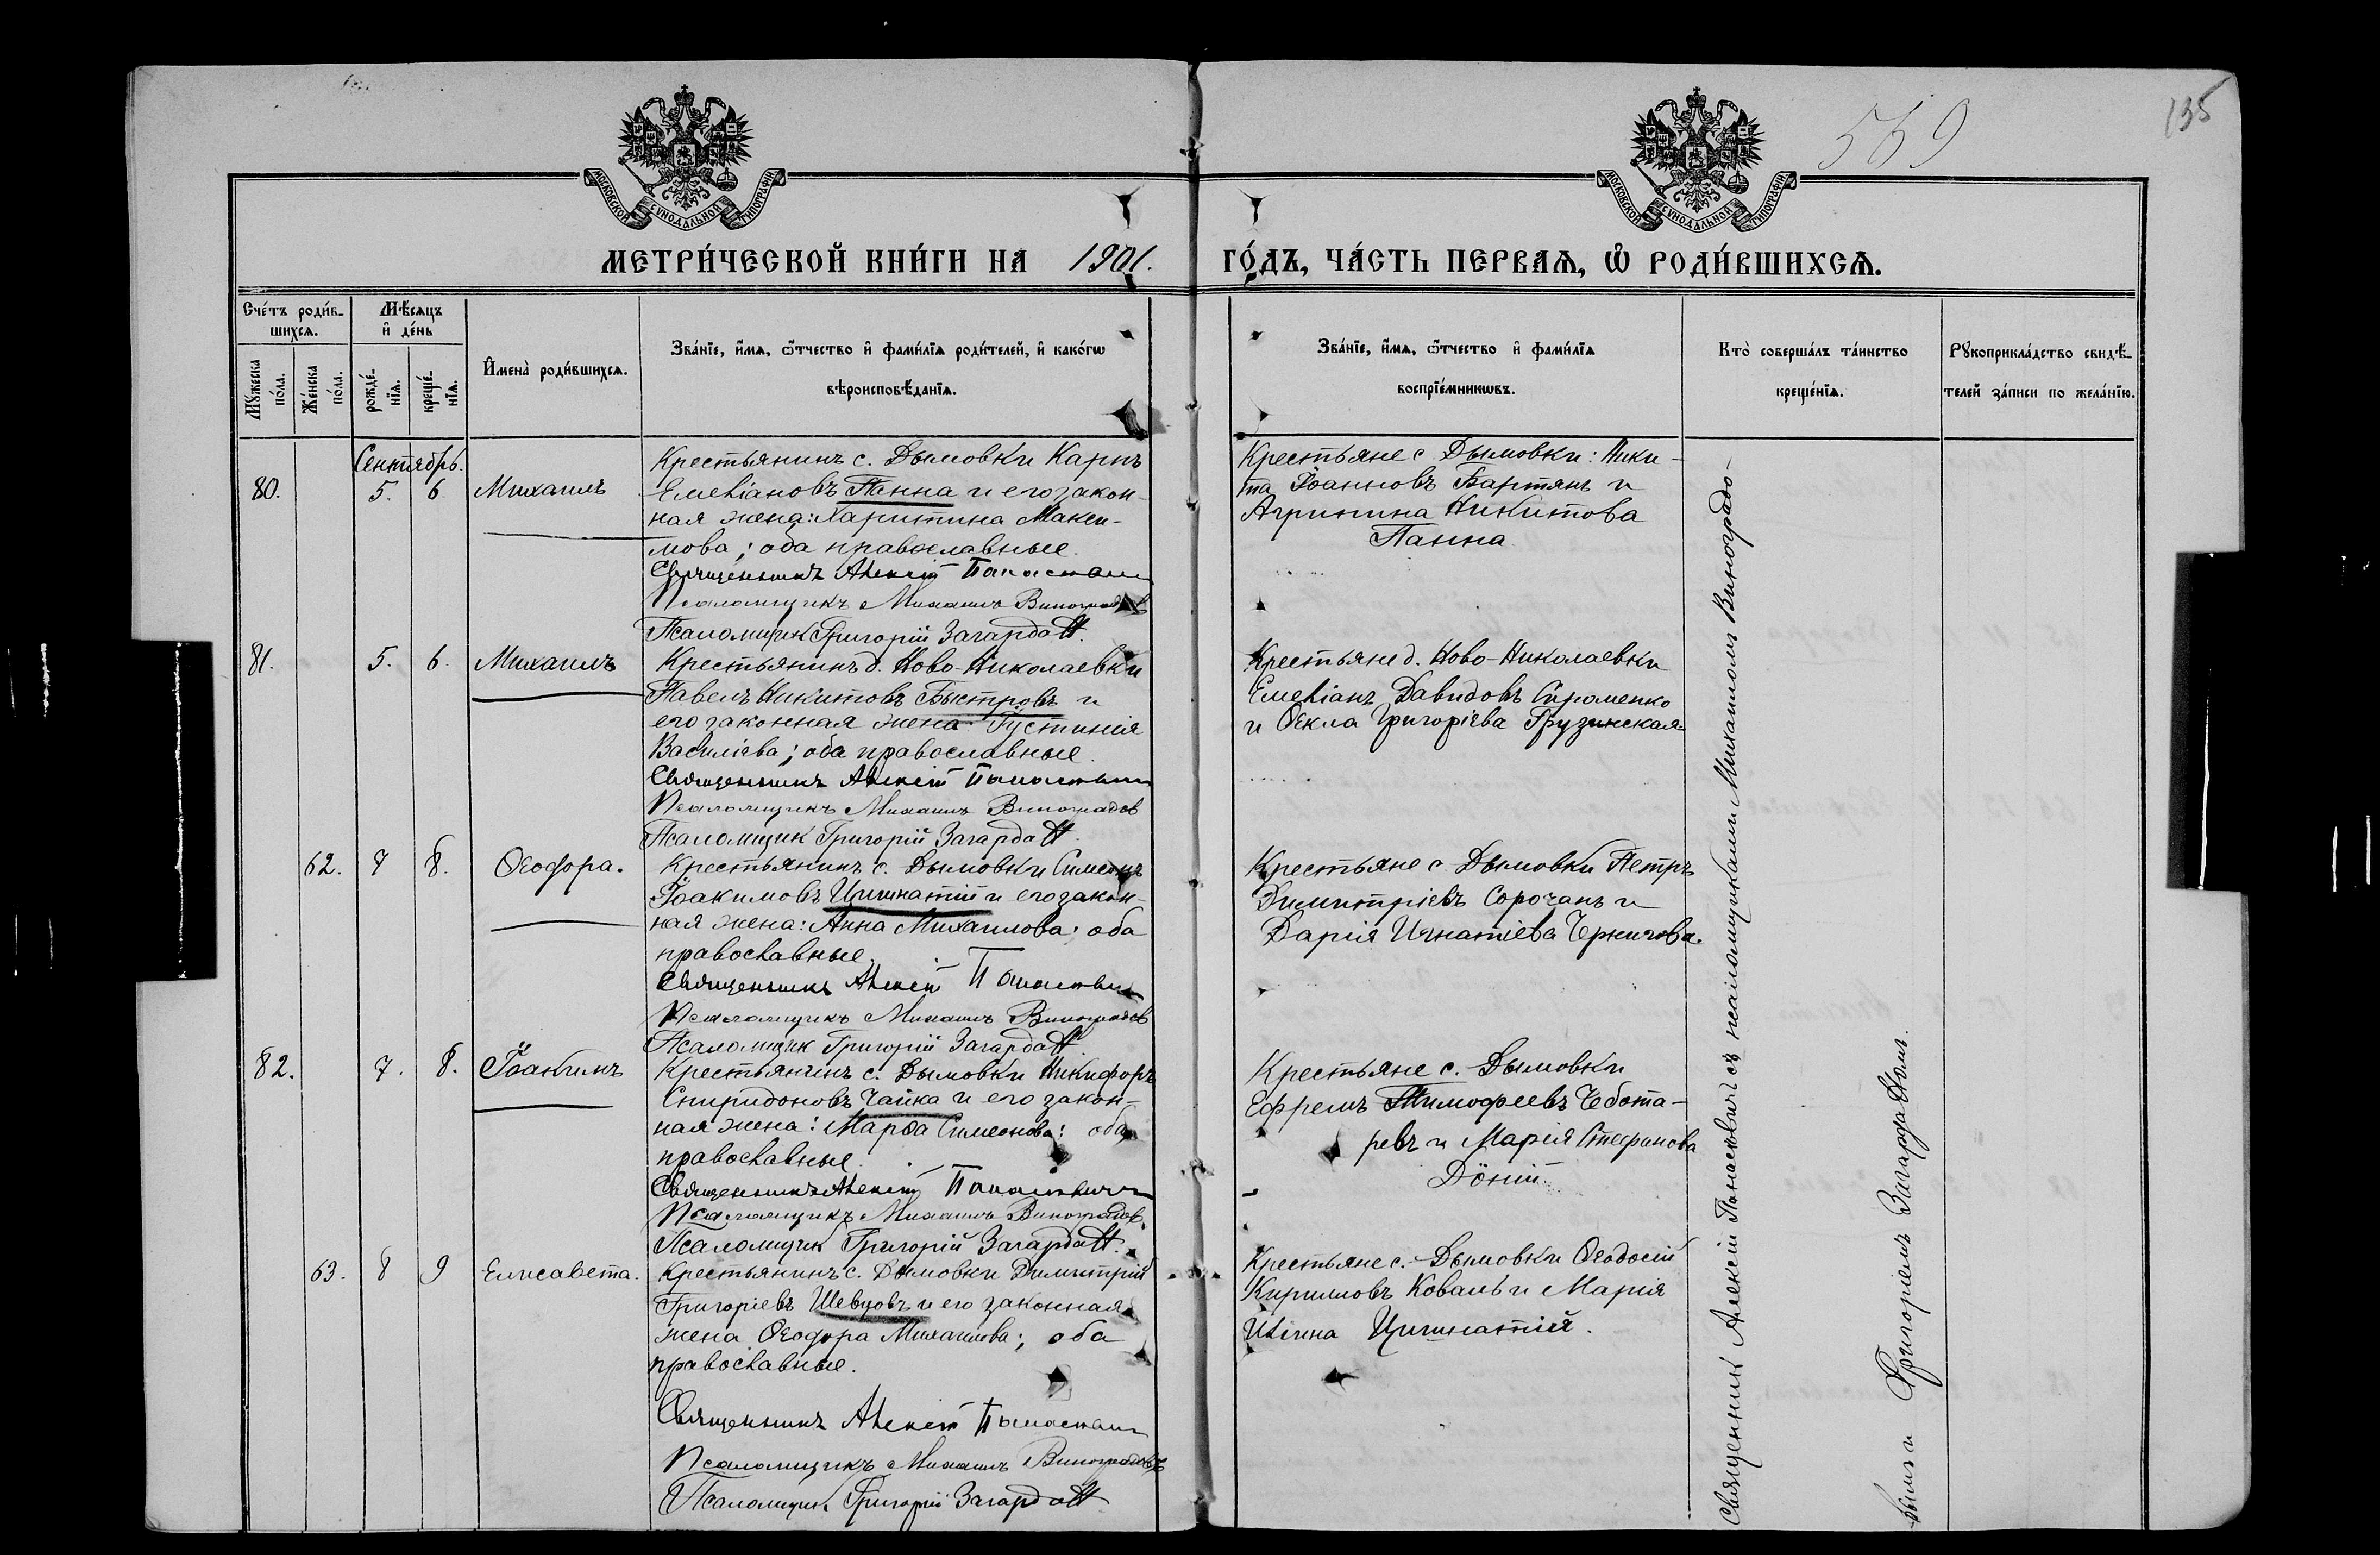 569
135
МОСКОВСКОЙ СѴНОДАЛЬНОЙ ТИПОГРАФІИ
МОСКОВСКОЙ СѴНОДАЛЬНОЙ ТИПОГРАФІИ
МЕТРИ́ЧЕСКОЙ КНИ́ГИ НА 1901. ГО́ДЪ, ЧА́СТЬ ПЕРВАѦ, Ѡ РОДИ́ВШИХСѦ.
Сче́тъ роди́в-
шихсѧ.
Мꙋ́жеска
по́ла.
Же́нска
по́ла.
Мѣ́сѧцъ
и҆ де́нь
рожде́-
нїѧ.
креще́-
нїѧ.
И҆мена̀ роди́вшихсѧ.
Зва́нїе, и҆́мѧ, ѻ҆́тчество и҆ фами́лїѧ роди́телей, и҆ како́гѡ
вѣроисповѣ́данїѧ.
Зва́нїе, и҆́мѧ, ѻ҆́тчество и҆ фами́лїѧ
воспрїе́мникѡвъ.
Кто̀ соверша́лъ та́инство
креще́нїѧ.
Рꙋкоприкла́дство свидѣ́-
телей за́писи по жела́нїю.
Сентябрь.
80. 5. 6 Михаилъ
Крестьянинъ с. Дымовки Карпъ
Емеліановъ Панна и его закон-
ная жена: Харитина Макси-
мова; оба православные.
Священникъ Алексій
Псаломщикъ Михаилъ Виноградовъ
Псаломщик Григорій Загарда
Крестьяне с Дымовки: Ники-
та Іоанновъ Бартянъ и
Агрипина Никитова
Панна
81. 5. 6. Михаилъ
Крестьянинъ д. Ново-Николаевки
Павелъ Никитовъ Быстровъ и
его законная жена Іустинія
Василіева; оба православные.
Священникъ Алексій
Псаломщикъ Михаилъ Виноградов
Псаломщик Григорій Загарда
Крестьяне д. Ново-Николаевки
Емеліанъ Давидовъ
и Ѳекла Григоріева Грузинская
62. 7 8. Ѳеодора.
Крестьянинъ с. Дымовки Симеонъ
Іоакимовъ Цигинатій и его закон-
ная жена: Анна Михаилова: оба
православные.
Священникъ Алексій
Псаломщикъ Михаилъ Виноградов
Псаломщик Григорій Загарда
Крестьяне с Дымовки Петръ
Димитріевъ Сорочанъ и
Дарія Игнатіева Чернигова.
82. 7. 8. Іоакимъ
Крестьянинъ с. Дымовки Никифоръ
Спиридоновъ Чайка и его закон-
ная жена: Марѳа Симеонова: оба
православные.
Священникъ Алексій
Псаломщикъ Михаилъ Виноградов
Псаломщик Григорій Загарда
Крестьяне с. Дымовки
Ефремъ Тимофеевъ Чебота-
ревъ и Марія Стефанова
Доній.
63. 8 9 Елисавета.
Крестьянинъ с. Дымовки Димитрій
Григоріевъ Шевцовъ и его законная
жена Ѳеодора Михаилова; оба
православные.
Священникъ Алексій
Псаломщикъ Михаилъ Виноградовъ
Псаломщик Григорій Загарда
Крестьяне с. Дымовки Ѳеодосій
Кирилловъ Коваль и Марія
Цигинатій.
Священникъ Алексій Панасевичъ съ псаломщиками Михаиломъ Виноградо-
вымъ и Григоріемъ